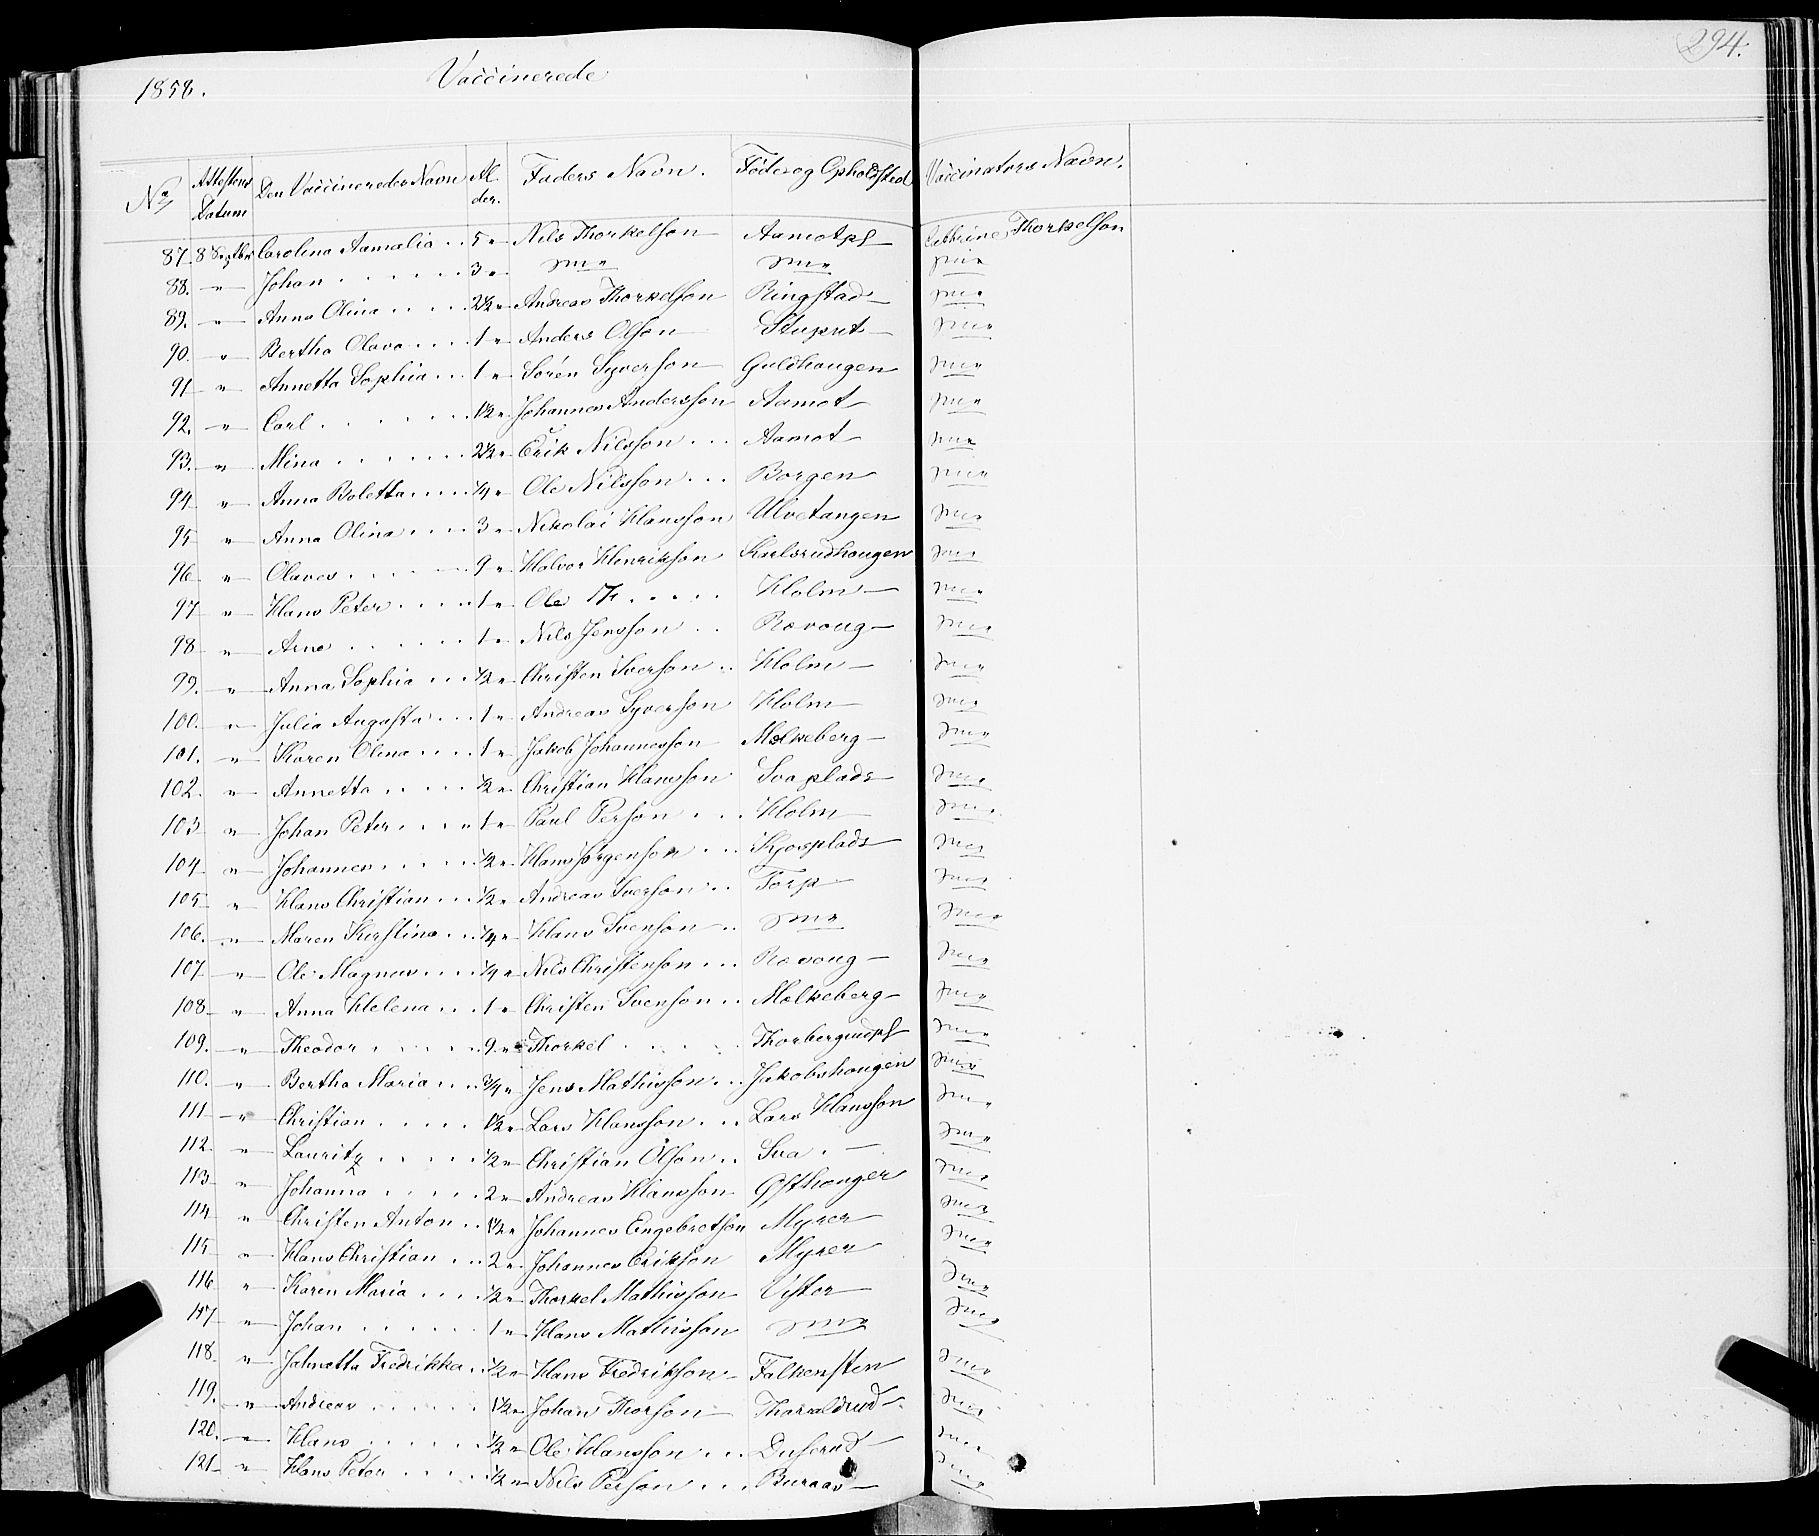 294.
1858. Vaccinerede
No Attestens Datum Den Vaccineredes Navn Alder. Faders Navn. Føde og Opholdsted Vaccinators Navn.
87. 8 Septbr Carolina Aamalia .. 5 " Nils Thorkelson Aamotpl Cathrine Thorkelson
88. " Johan 3 " " "
89. " Anna Olina 2½ " Andreas Thorkelson Ringstad "
90. " Bertha Olava 1 " Anders Olson Stuprit "
91 " Annetta Sophia 1 " Søren Syverson Guldhaugen "
92. " Carl 1½ " Johannes Andersson Aamot "
93. " Mina 2½ " Erik Nilsson Aamot "
94 " Anna Boletta ¼ " Ole Nilsson Borgen "
95 " Anna Olina 3 " Nikolai Hansson Ulvetangen "
96 " Olaves 9 " Halvor Henrikson Karlsrudhaugen "
97 " Hans Peter 1 " Ole Holm "
98 " Arne 1 " Nils Jensson Ravoug "
99. " Anna Sophia ½ " Christen Sverson Holm "
100. " Julia Augusta 1 " Andreas Syverson Holm "
101. " Karen Olina 1 " Jakob Johannesson Mælkeberg "
102. " Annetta ½ " Christian Hansson Svaplads "
103 " Johan Peter 1 " Paul Person Holm "
104 " Johannes ½ " Hans Jørgenson Kjosplads "
105 " Hans Christian ½ " Andreas Sverson Torp "
106. " Maren Kirstina ¼ " Hans Svenson " "
107 " Ole Magnus ¼ " Nils Christenson Ravoug "
108 " Anna Helena 1 " Christen Svenson Mælkeberg "
109. " Theodor 9 " Thorkel Thorbergrudpl "
110. " Bertha Maria ¾ " Jens Mathisson Jakobshaugen "
111 " Christian 1½ " Lars Hansson Lars Hansson "
112. " Lauritz ½ " Christian Olson Sva "
113 " Johanna 2 " Andreas Hansson Østhouger "
114 " Christen Anton 1½ " Johannes Engebretson Myrer "
115 " Hans Christian 2 " Johannes Erikson Myrer "
116 " Karen Maria ½ " Thorkel Mathisson Vistor "
117 " Johan 1 " Hans Mathisson " "
118. " Jahnetta Fredrikka ½ " Hans Fredrikson Falkensten "
119. " Andreas 1½ " Johan Thorson Tharaldrud "
120. " Hans ½ " Ole Hansson Duserud "
121 " Hans Peter ½ " Nils Person Buraas "